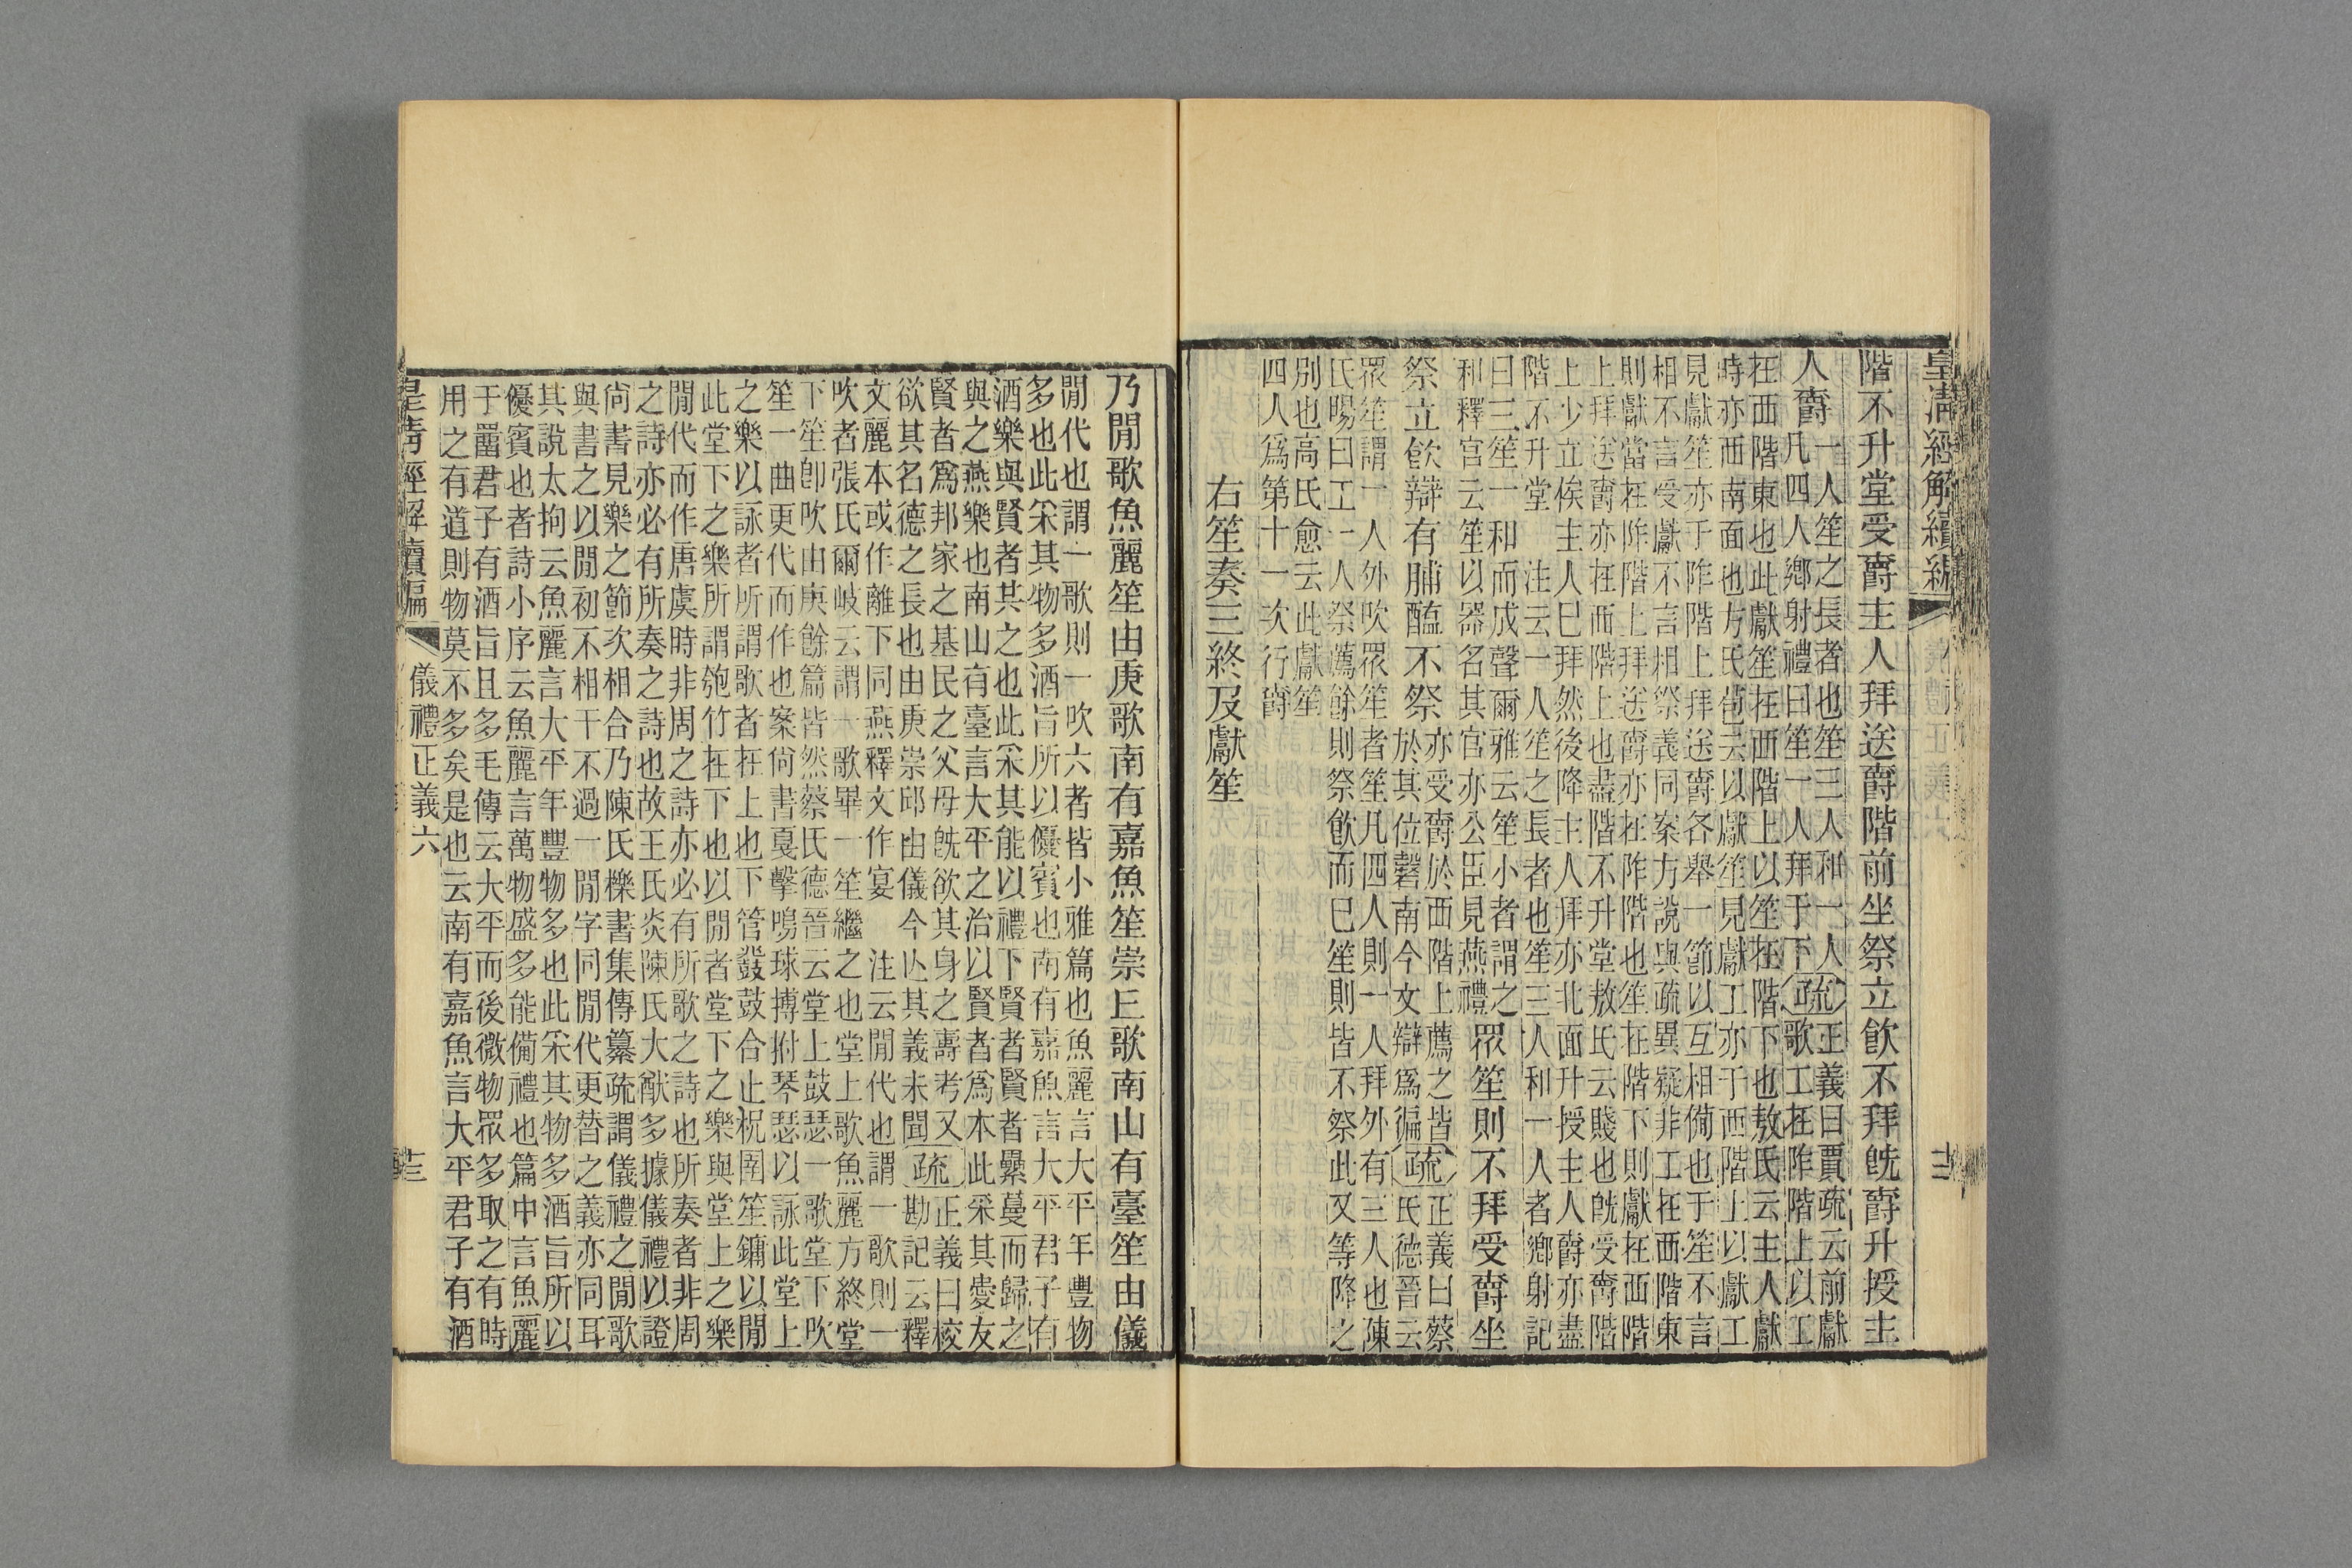 皇清經解續編
十三
階不升堂受爵主人拜送爵階前坐祭立飮不拜旣爵升授主
人爵
一人笙之長者也笙三人和一人
凡四人鄉射禮曰笙一人拜于下
疏
正義曰賈疏云前獻
歌工在阼階上以工
在西階東也此獻笙在西階上以笙在階下也敖氏云主人獻
時亦西南面也方氏苞云以獻笙見獻工亦于西階上以獻工
見獻笙亦于阼階上拜送爵各舉一節以互相備也于笙不言
相不言受獻不言相祭義同案方說與疏異疑非工在西階東
則獻當在阼階上拜送爵亦在阼階也笙在階下則獻在西階
上拜送爵亦在西階上也盡階不升堂敖氏云賤也旣受爵階
上少立俟主人已拜然後降主人拜亦北面升授主人爵亦盡
階不升堂 注云一人笙之長者也笙三人和一人者鄉射記
曰三笙一和而成聲爾雅云笙小者謂之
和釋宮云笙以器名其官亦公臣見燕禮
眾笙則不拜受爵坐
祭立飮辯有脯醢不祭
亦受爵於西階上薦之皆
於其位磬南今文辯爲徧
疏
正義曰蔡
氏德晉云
眾笙謂一人外吹眾笙者笙凡四人則一人拜外有三人也陳
氏暘曰工一人祭薦餘則祭飮而已笙則皆不祭此又等降之
別也高氏愈云此獻笙
四人爲第十一次行爵
右笙奏三終及獻笙
乃閒歌魚麗笙由庚歌南有嘉魚笙崇丘歌南山有臺笙由儀
閒代也謂一歌則一吹六者皆小雅篇也魚麗言大平年豐物
多也此采其物多酒旨所以優賓也南有嘉魚言大平君子有
酒樂與賢者其之也此采其能以禮下賢者賢者纍蔓而歸之
與之燕樂也南山有臺言大平之治以賢者爲本此采其愛友
賢者爲邦家之基民之父母旣欲其身之壽考又
欲其名德之長也由庚崇邱由儀今亾其義未聞
疏
正義曰校
勘記云釋
文麗本或作離下同燕釋文作宴 注云閒代也謂一歌則一
吹者張氏爾岐云謂一歌畢一笙繼之也堂上歌魚麗方終堂
下笙卽吹由庚餘篇皆然蔡氏德晉云堂上鼓瑟一歌堂下吹
笙一曲更代而作也案尙書戛擊鳴球搏拊琴瑟以詠此堂上
之樂以詠者所謂歌者在上也下管鼗鼓合止柷圉笙鏞以閒
此堂下之樂所謂匏竹在下也以閒者堂下之樂與堂上之樂
閒代而作唐虞時非周之詩亦必有所歌之詩也所奏者非周
之詩亦必有所奏之詩也故王氏炎陳氏大猷多據儀禮以證
尙書見樂之節次相合乃陳氏櫟書集傳纂疏謂儀禮之閒歌
與書之以閒初不相干不過一閒字同閒代更替之義亦同耳
其說太拘云魚麗言大平年豐物多也此采其物多酒旨所以
優賓也者詩小序云魚麗言萬物盛多能備禮也篇中言魚麗
于罶君子有酒旨且多毛傳云大平而後微物眾多取之有時
用之有道則物莫不多矣是也云南有嘉魚言大平君子有酒
皇清經解續編
儀禮正義六
十三